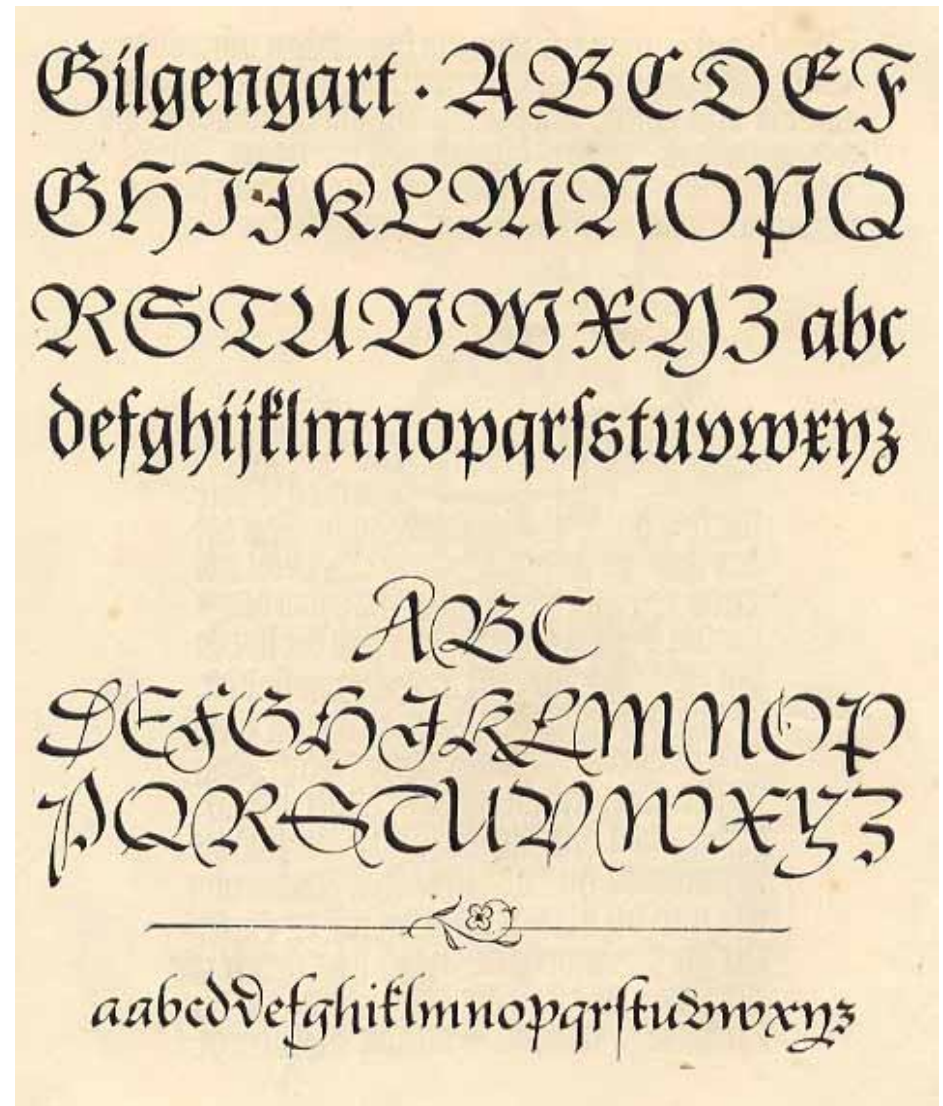 Gilgengart · ABCDEF
GHIJKLMNOPQ
RSTUVWXYZ abc
defghijklmnopqrſstuvwxyz
ABC
DEFGHJKLMNOP
PQRSTUVWXYZ
aabcddefghiklmnopqrſtuvwxyz